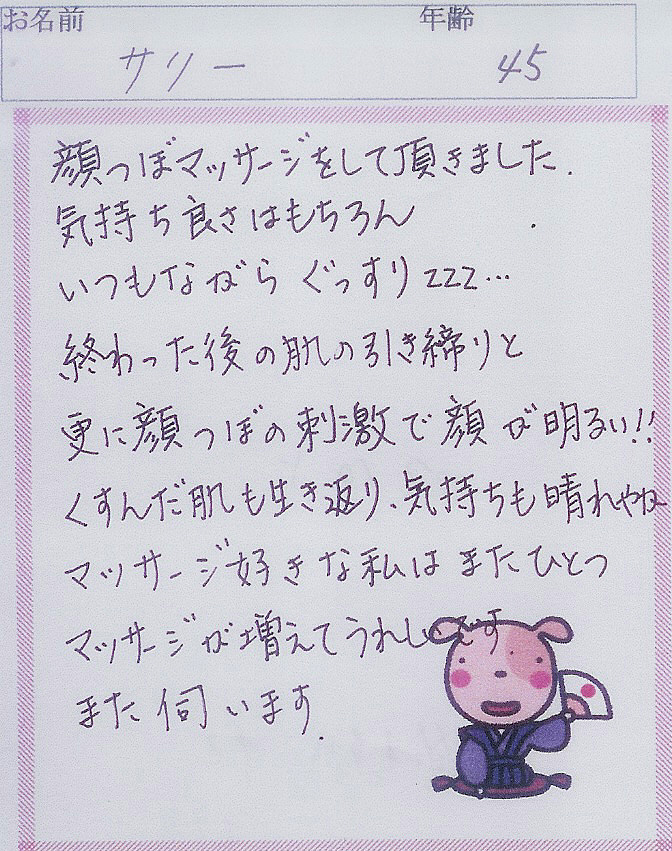 お名前 年齢
サリー 45
顔つぼマッサージをして頂きました.
気持ち良さはもちろん
いつもながら ぐっすり zzz…
終わった後の肌の引き締りと
更に顔つぼの刺激で顔が明るい!!
くすんだ肌も生き返り、気持ちも晴れやか
マッサージ好きな私は またひとつ
マッサージが増えてうれしいです
また伺います.